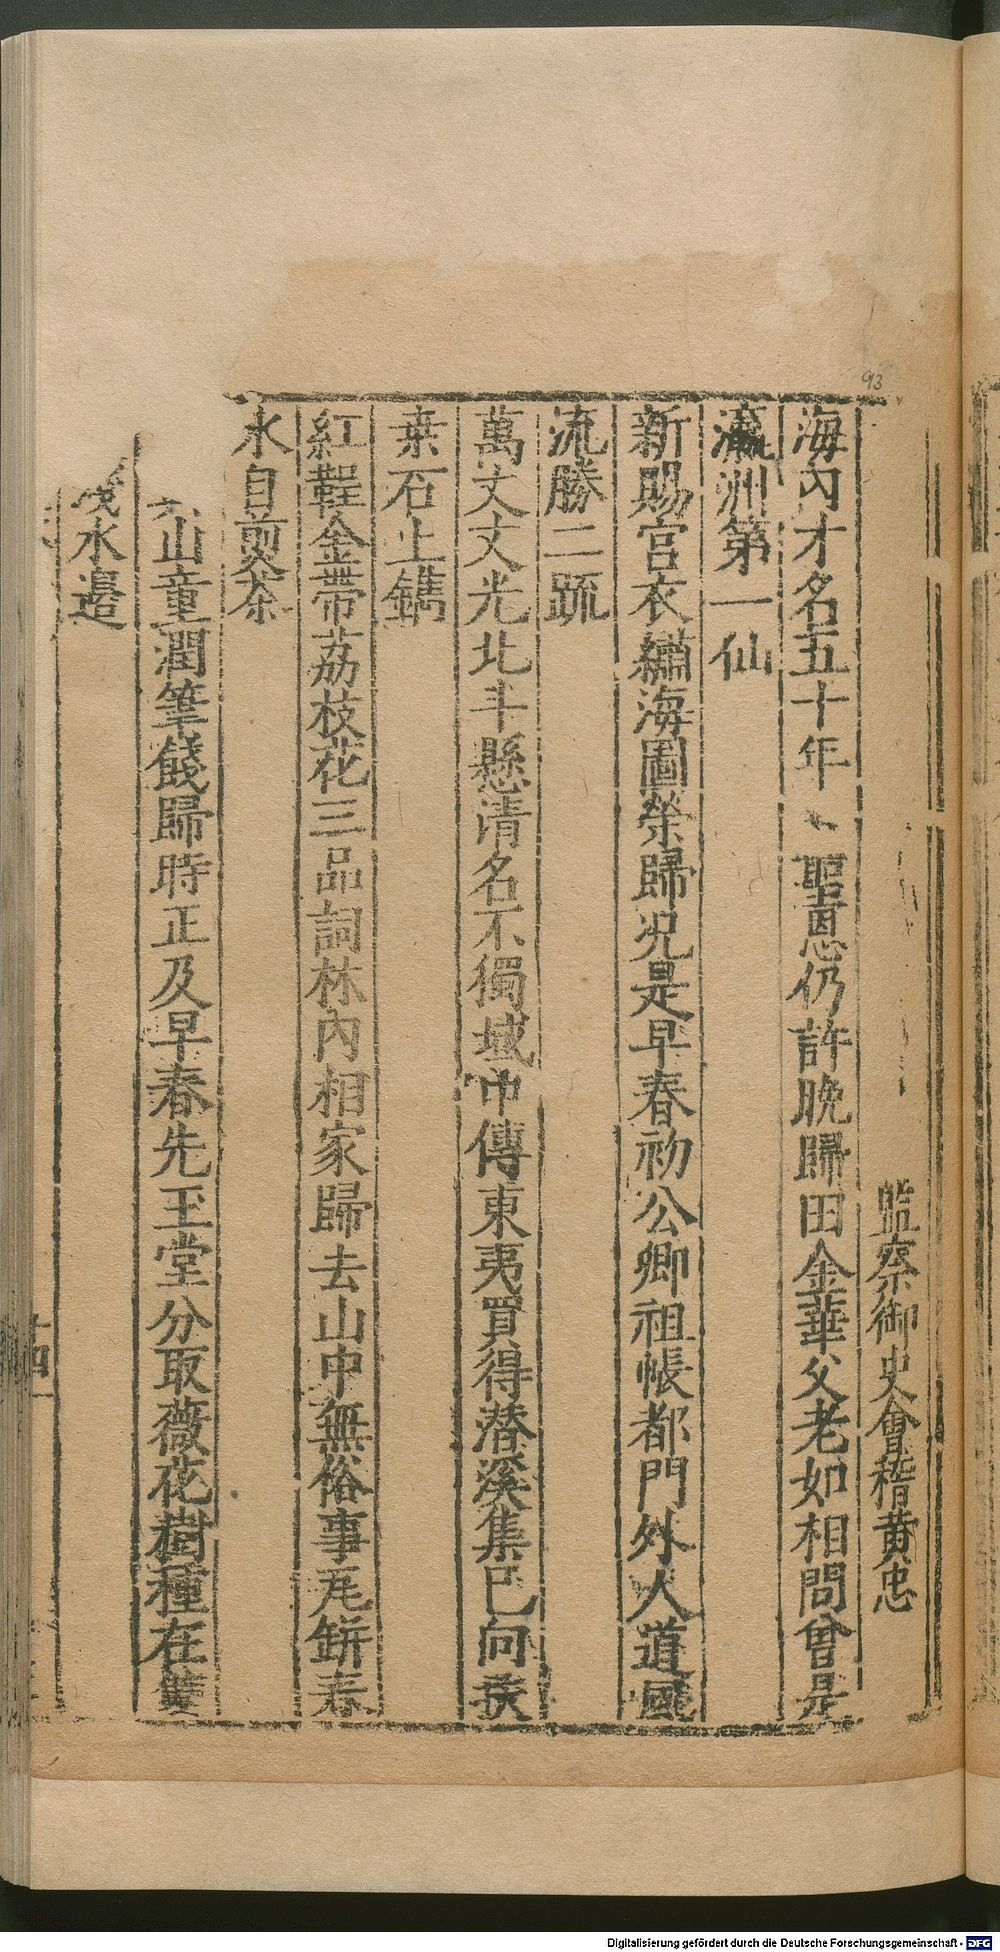 93
監察御史會稽黄忠
海内才名五十年、聖恩仍許晩歸田金華父老如相問曾是
瀛洲第一仙
新賜宫衣繡海圖榮歸况是早春初公卿祖帳都門外人道風
流勝二疏
萬丈文光北斗懸清名不獨域中傳東夷買得潜溪集已向扶
桒石上鐫
紅鞓金帶荔枝花三品詞林内相家歸去山中無俗事瓦缾春
水自煎茶
山童潤筆餞歸時正及早春先玉堂分取薇花樹種在雙
溪水邉
十四
Digitalisierung gefördert durch die Deutsche Forschungsgemeinschaft - DFG